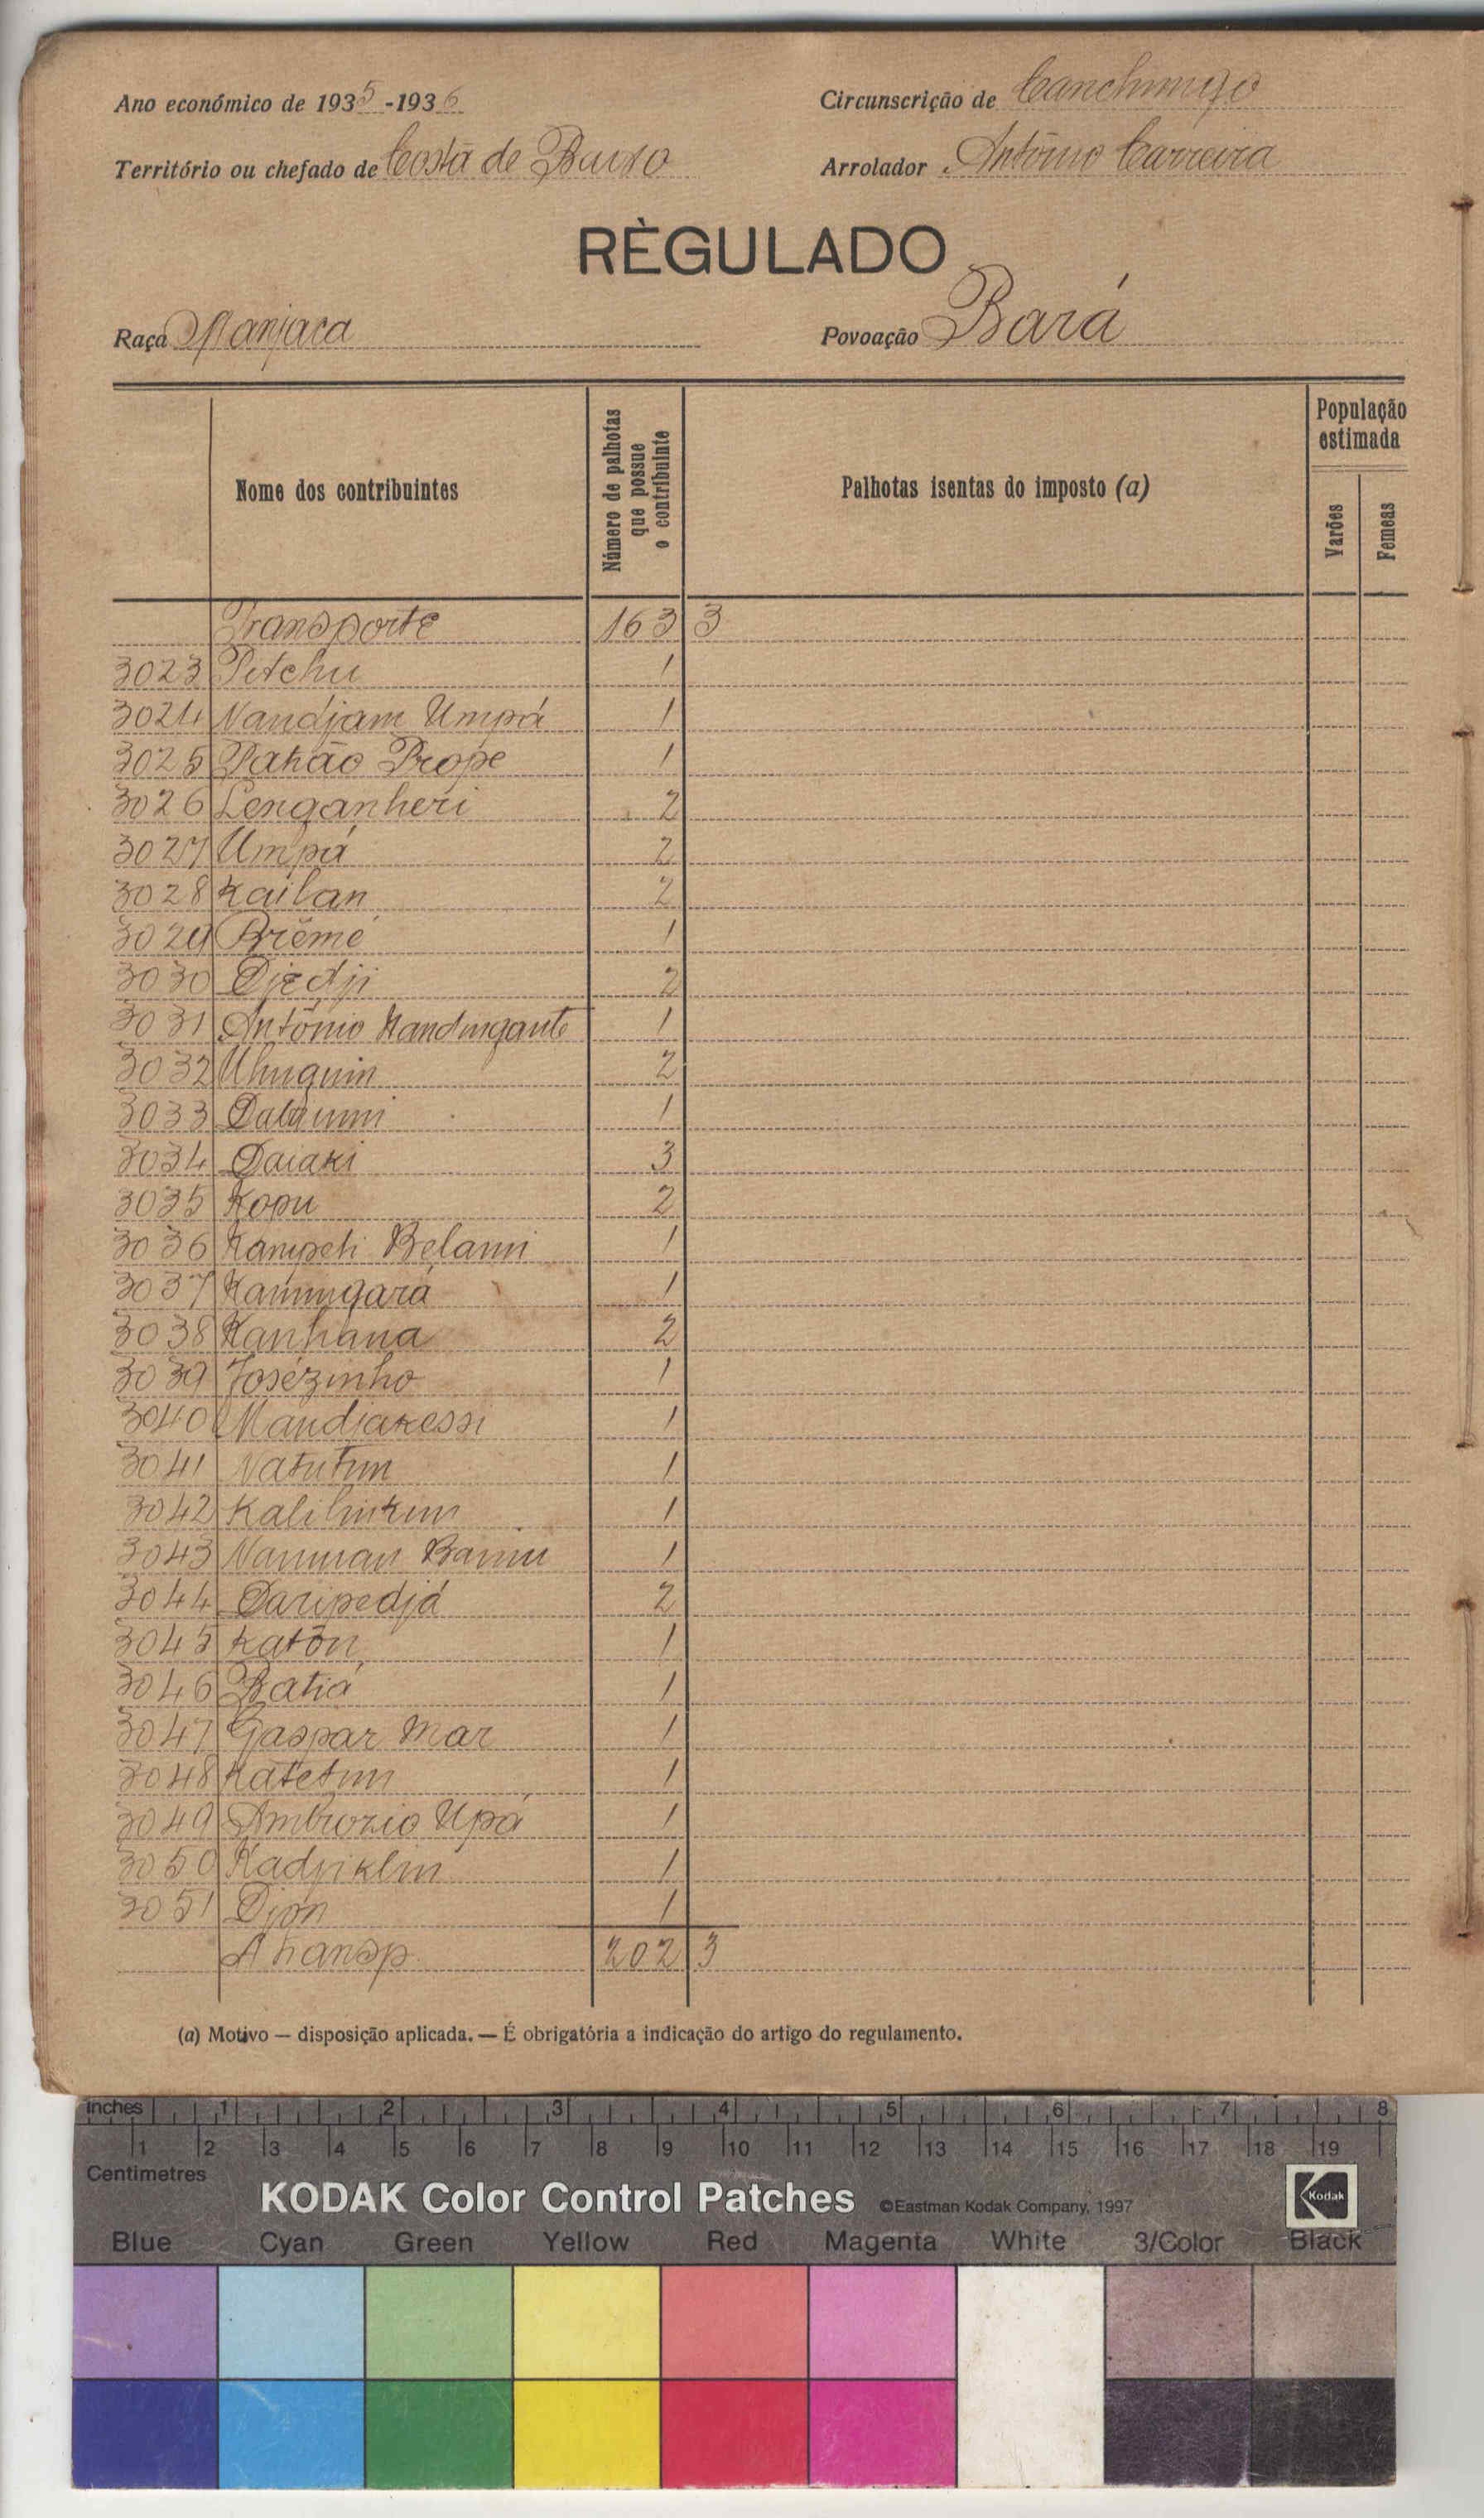 Ano económico de 1935-1936
Circunscrição de Canchungo
Território ou chefado de Costa de Baixo
Arrolador António Carreira
RÈGULADO
Raça Manjaca
Povoação Bará
Nome dos contribuintes
Número de palhotas que possue o contribuinte
Palhotas isentas do imposto (a)
População estimada
Varões
Femeas
Transporte 163 3
3023 Petchu 1
3024 Nandjam Umpá 1
3025 Pakão Prope 1
3026 Lenganheri 2
3027 Umpá 2
3028 Kailan 2
3029 Prémé 1
3030 Djedji 2
3031 António Kandingante 1
3032 Uhuquin 2
3033 1
3034 Daiaki 3
3035 Kopu 2
3036 Kampeli Belanni 1
3037 1
3038 Kanhana 2
3039 Josézinho 1
3040 Mandjakessi 1
3041 Natutun 1
3042 1
3043 Nanman 1
3044 Daripedjá 2
3045 Katôn 1
3046 Batiá 1
3047 Gaspar Mar 1
3048 Katetun 1
3049 Ambrozio Upá 1
3050 Kadjiklin 1
3051 Djón 1
A transp. 202 3
(a) Motivo — disposição aplicada. — É obrigatória a indicação do artigo do regulamento.
inches 1 2 3 4 5 6 7 8
1 2 3 4 5 6 7 8 9 10 11 12 13 14 15 16 17 18 19
Centimetres
KODAK Color Control Patches ©Eastman Kodak Company, 1997 Kodak
Blue Cyan Green Yellow Red Magenta White 3/Color Black